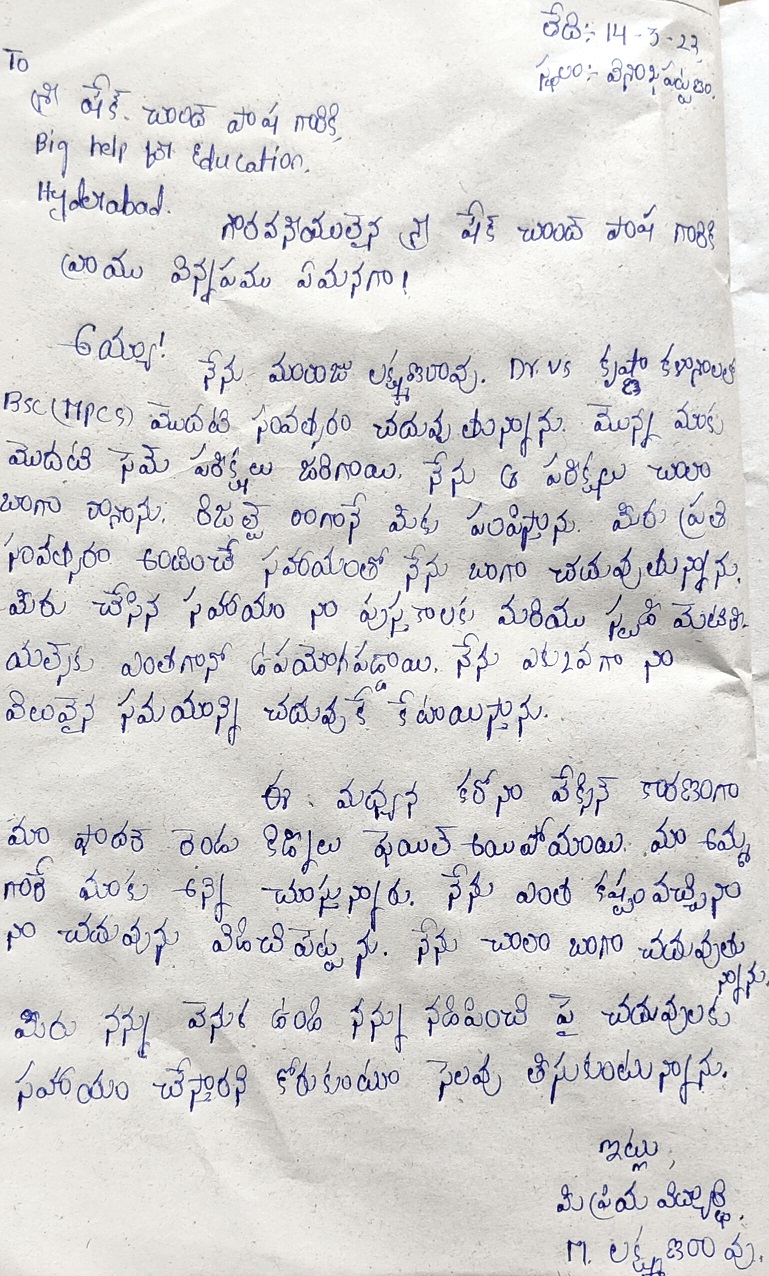 తేది:- 14-3-23
స్థలం:- విశాఖపట్టణం.
To
శ్రీ షేక్. చాంద్ పాష గారికి,
Big help for Education,
Hyderabad.
గౌరవనీయులైన శ్రీ షేక్ చాంద్ పాష గారికి
వ్రాయు విన్నపము ఏమనగా!
అయ్యా!
నేను మారాజు లక్ష్మణరావు. Dr. VS కృష్ణా కళాశాలలో
BSC(MPCS) మొదటి సంవత్సరం చదువుతున్నాను. మొన్న మాకు
మొదటి సెమ్ పరీక్షలు జరిగాయి. నేను ఆ పరీక్షలు చాలా
బాగా రాశాను. రిజల్ట్ రాగానే మీకు పంపిస్తాను. మీరు ప్రతి
సంవత్సరం అందించే సహాయంతో నేను బాగా చదువుతున్నాను.
మీరు చేసిన సహాయం నా పుస్తకాలకు మరియు స్టడీ మెటీరి-
యల్స్‌కు ఎంతగానో ఉపయోగపడ్డాయి. నేను ఎకువగా నా
విలువైన సమయాన్ని చదువుకే కేటాయిస్తాను.
ఈ మధ్యన కరోనా వేక్సిన్ కారణంగా
మా ఫాదర్ రెండు కిడ్నీలు ఫెయిల్ అయిపోయాయి. మా అమ్మ
గారే మాకు అన్నీ చూస్తున్నారు. నేను ఎంత కష్టం వచ్చినా
నా చదువును విడిచిపెట్టను. నేను చాలా బాగా చదువుతు
న్నాను.
మీరు నన్ను వెనుక ఉండి నన్ను నడిపించి పై చదువులకు
సహాయం చేస్తారని కోరుకుంటూ సెలవు తీసుకుంటున్నాను.
ఇట్లు,
మీ ప్రియ విద్యార్థి.
M. లక్ష్మణరావు.